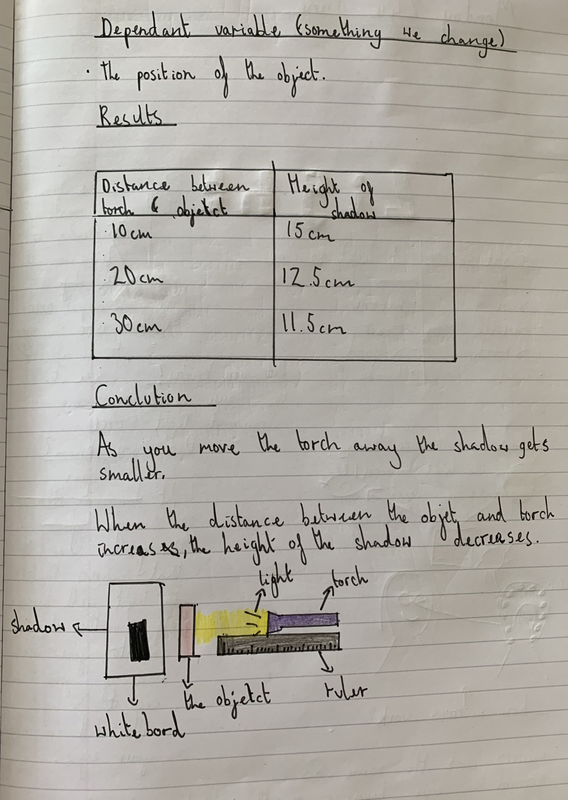 Dependant variable (something we change)
· The position of the object.
Results
Distance between
torch & objetct
Height of
shadow
10cm
15cm
20cm
12.5cm
30cm
11.5cm
Conclution
As you move the torch away the shadow gets
smaller.
When the distance between the objet and torch
increases, the height of the shadow decreases.
light
torch
shadow
the objetct
ruler
white bord